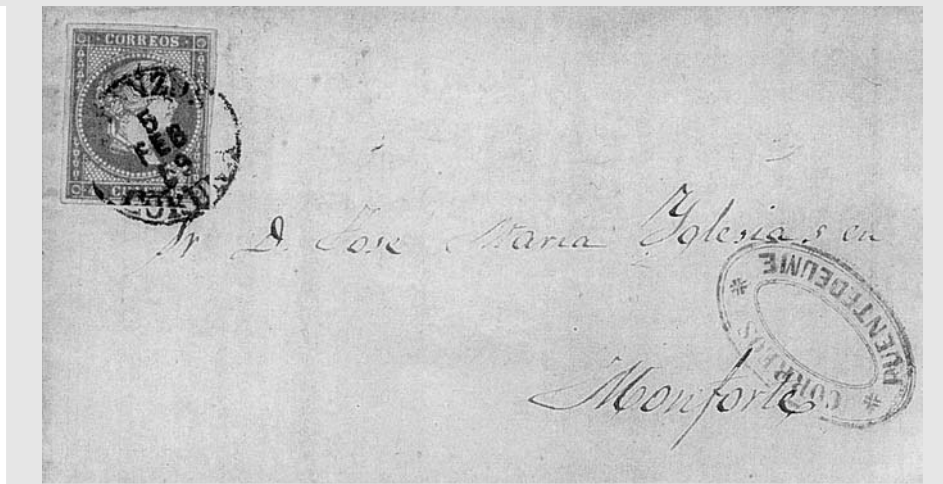 CORREOS
5
FEB
59
CORUÑA
Sr D. Jose Maria Yglesias en
PUENTEDEUME
CORREOS
Monforte